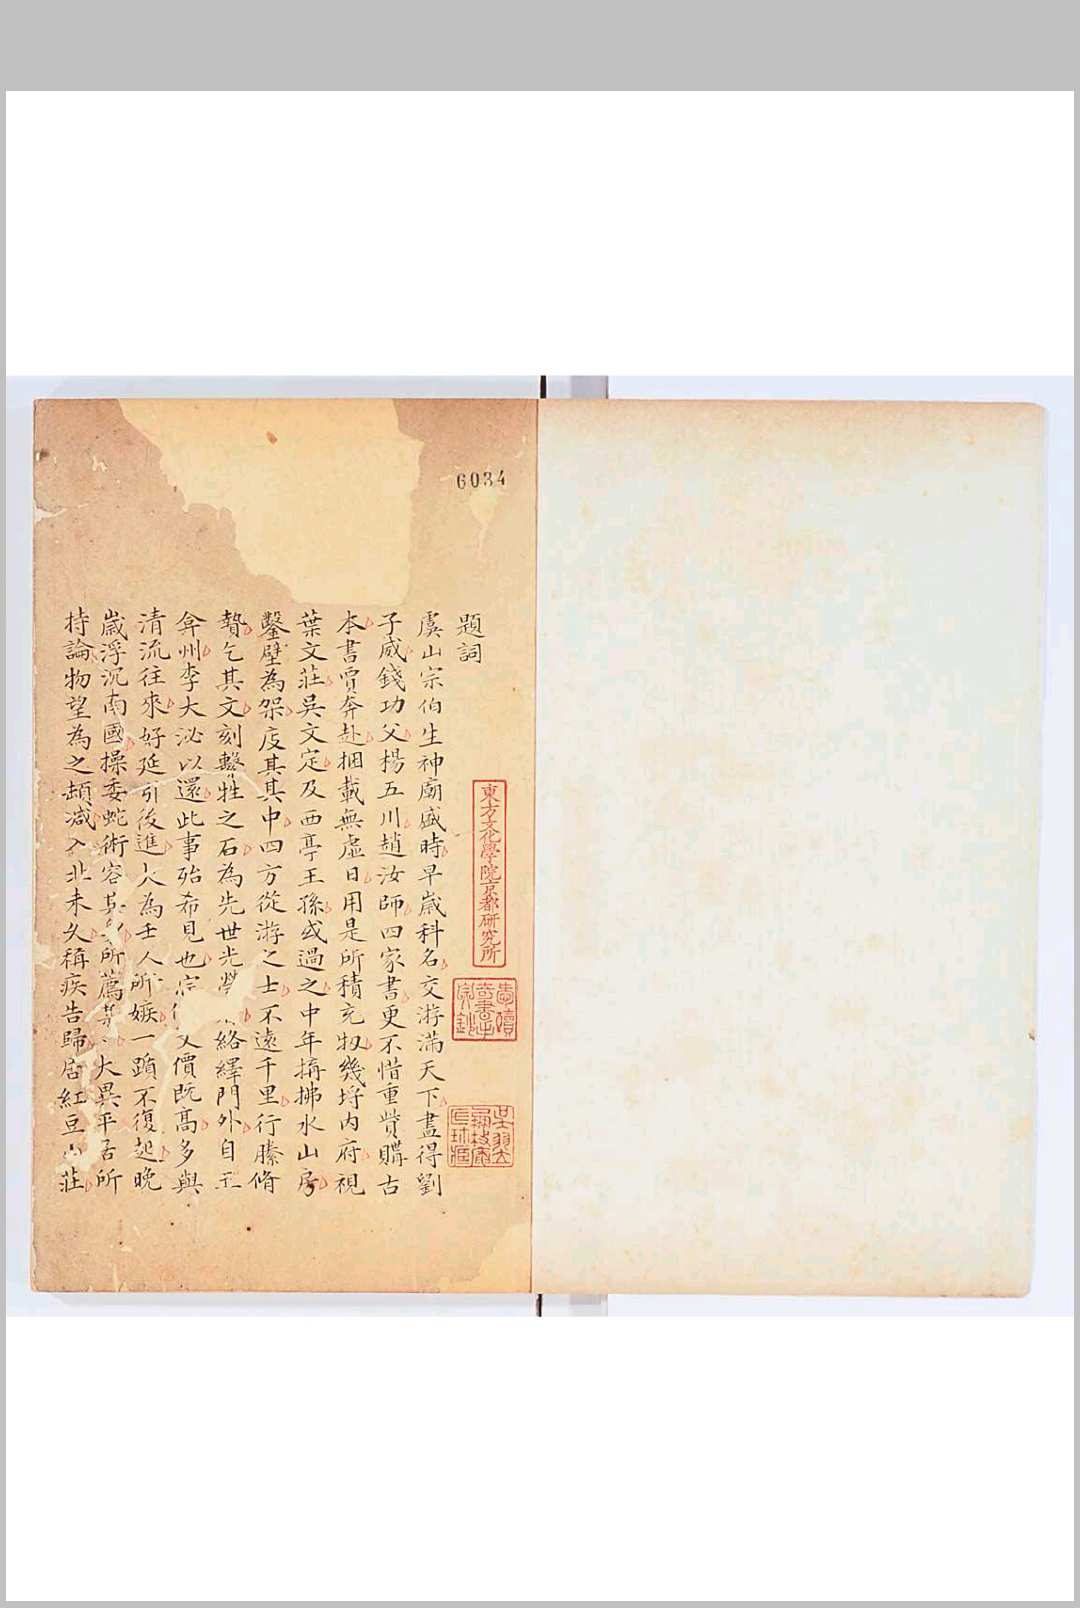 6034
題詞
虞山宗伯生神廟盛時早歲科名交游滿天下盡得劉
子威錢功父楊五川趙汝師四家書更不惜重貲購古
本書賈奔赴捆載無虛日用是所積充牣幾埒内府視
葉文莊吳文定及西亭王孫或過之中年搆拂水山房
鑿壁為架庋其其中四方從游之士不遠千里行縢脩
贄乞其文刻繫牲之石為先世光榮絡繹門外自王
弇州李大泌以還此事殆希見也宗 文價既高多與
清流往來好延引後進大為壬人所嫉一躓不復起晚
歲浮沉南國操委蛇術容其身所薦某 大異平居所
持論物望為之頓減入北未久稱疾告歸居紅豆山莊
東方文化學院京都研究所